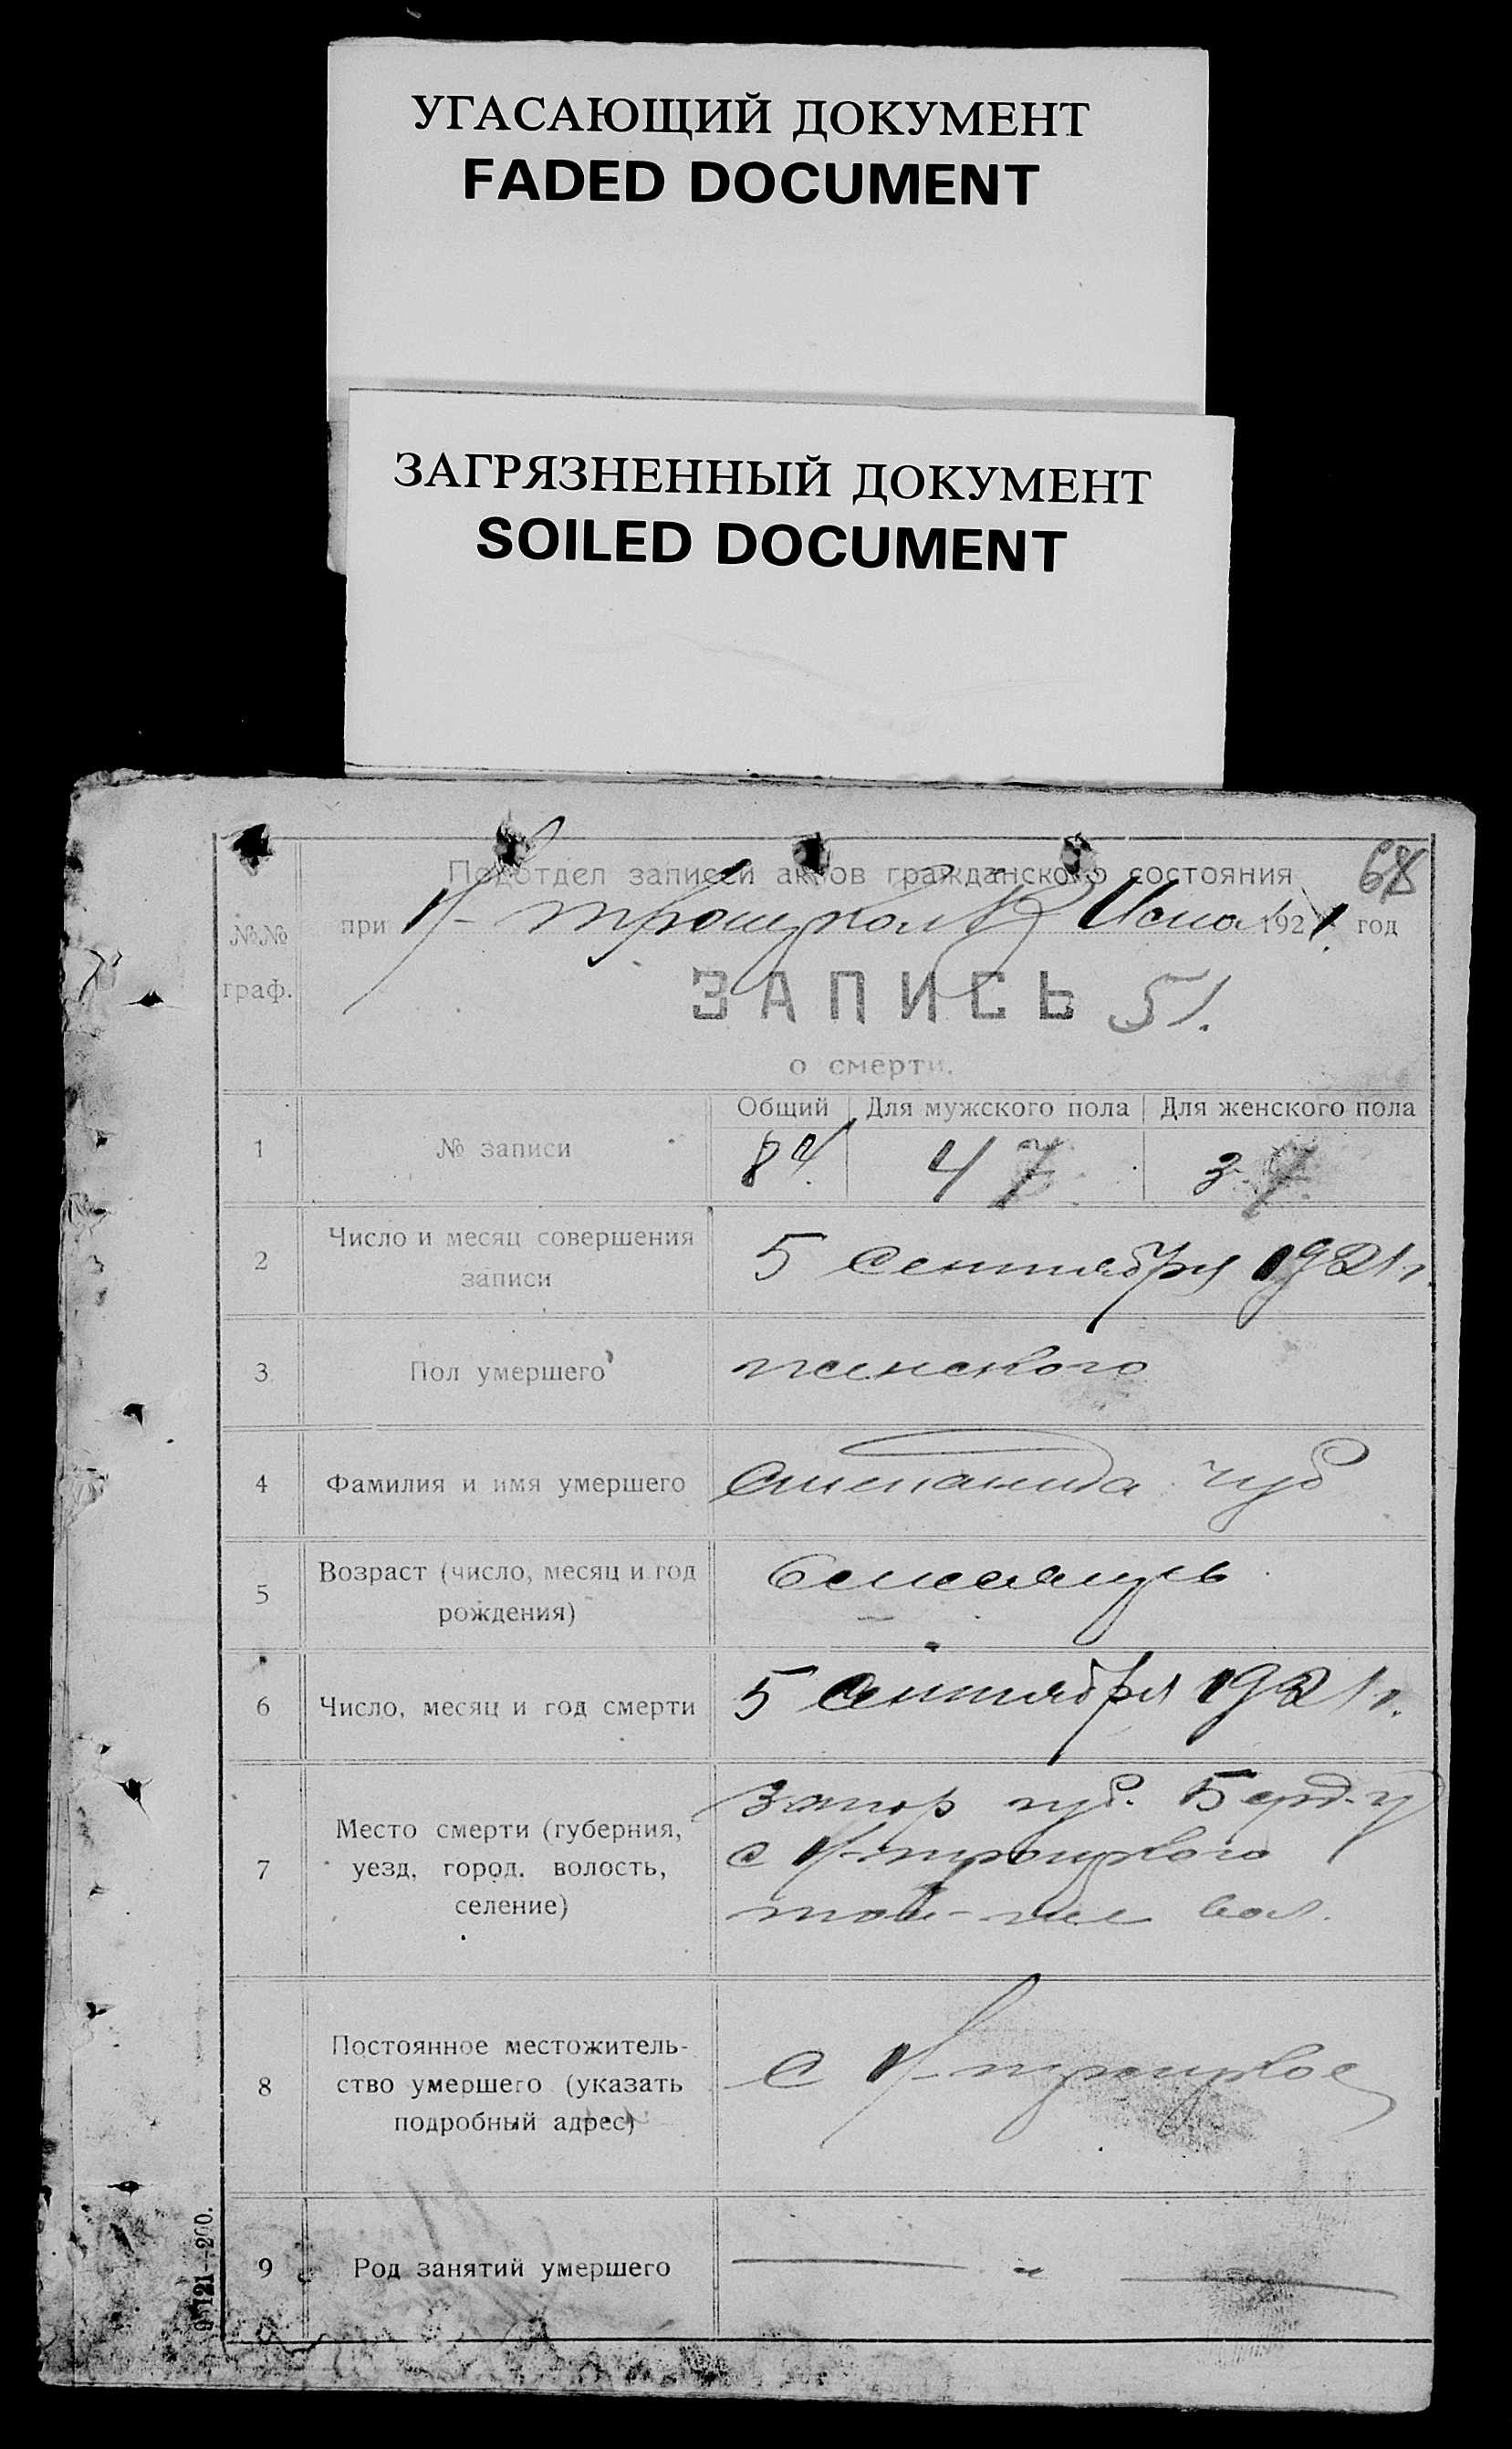 УГАСАЮЩИЙ ДОКУМЕНТ
FADED DOCUMENT
ЗАГРЯЗНЕННЫЙ ДОКУМЕНТ
SOILED DOCUMENT
68
Подотдел записей актов гражданского состояния
№№ граф.
при Н-троицком В Испол 1921 год
ЗАПИСЬ 51.
о смерти.
Общий Для мужского пола Для женского пола
1 № записи 84 47 37
2 Число и месяц совершения записи 5 сентября 1921 г.
3 Пол умершего женского
4 Фамилия и имя умершего Степанида Чуб
5 Возраст (число, месяц и год рождения) 6 месяцев
6 Число, месяц и год смерти 5 сентября 1921 г.
7 Место смерти (губерния, уезд, город, волость, селение) Запор губ. Берд. у
с Н-троицкого
той-же вол.
8 Постоянное местожитель-
ство умершего (указать
подробный адрес) с Н-троицкое
9 Род занятий умершего — „ —
95121—200.